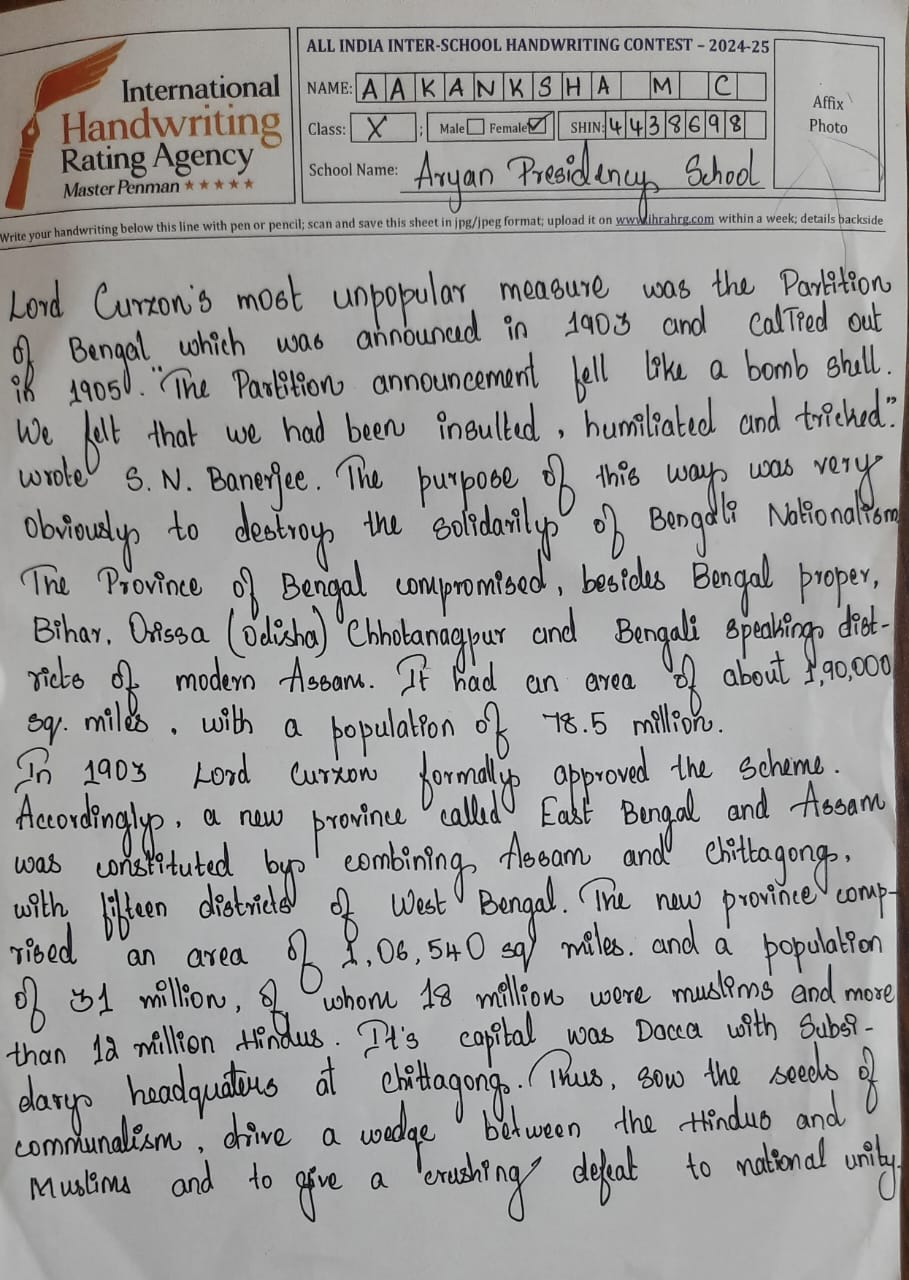 International
Handwriting
Rating Agency
Master Penman ★★★★★
ALL INDIA INTER-SCHOOL HANDWRITING CONTEST – 2024-25
NAME: AAKANKSHA M C
Class: X ; Male Female ✓ SHIN: 4438698
School Name: Aryan Presidency School
Affix
Photo
Write your handwriting below this line with pen or pencil; scan and save this sheet in jpg/jpeg format; upload it on www.ihrahrg.com within a week; details backside
Lord Curzon's most unpopular measure was the Partition
of Bengal which was announced in 1903 and calried out
in 1905. "The Partition announcement fell like a bomb shell.
We felt that we had been insulted, humiliated and tricked."
wrote S. N. Banerjee. The purpose of this way was very
obviously to destroy the solidarity of Bengali Nationalism
The Province of Bengal compromised, besides Bengal proper,
Bihar, Orissa (Odisha) Chhotanagpur and Bengali speaking dist-
ricts of modern Assam. It had an area of about 1,90,000
sq. miles, with a population of 78.5 million.
In 1903 Lord Curzon formally approved the scheme.
Accordingly, a new province called East Bengal and Assam
was constituted by combining Assam and Chittagong,
with fifteen districts of West Bengal. The new province comp-
rised an area of 1,06,540 sq miles. and a population
of 31 million, of whom 18 million were muslims and more
than 12 million Hindus. It's capital was Dacca with Subsi-
dary headquaters at Chittagong. Thus, sow the seeds of
communalism, drive a wedge between the Hindus and
Muslims and to give a crushing defeat to national unity.